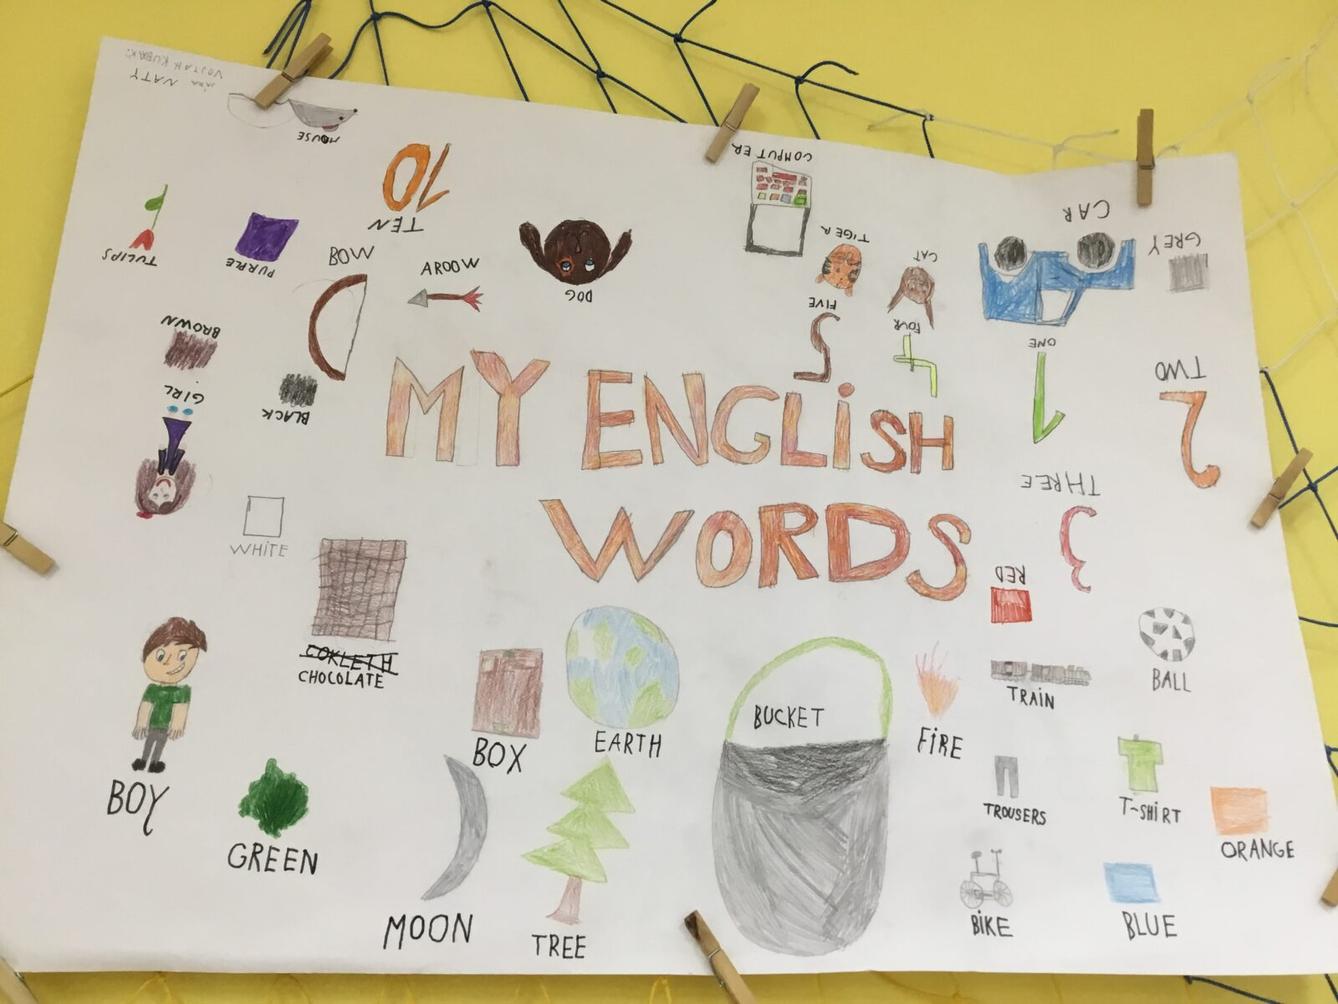 VOJTAH KUBAK:
NATY
MOUSE
TEN
10
COMPUTER
CAR
GREY
TIGER
CAT
TULIPS
PURPLE
BOW
AROOW
DOG
FIVE
5
FOUR
4
ONE
1
TWO
2
BROWN
GIRL
BLACK
MY ENGLiSH
WORDS
THREE
3
RED
WHiTE
COKLETH
CHOCOLATE
BOX
EARTH
BUCKET
FiRE
TRAiN
BALL
BOY
GREEN
MOON
TREE
TROUSERS
T-SHiRT
ORANGE
BiKE
BLUE